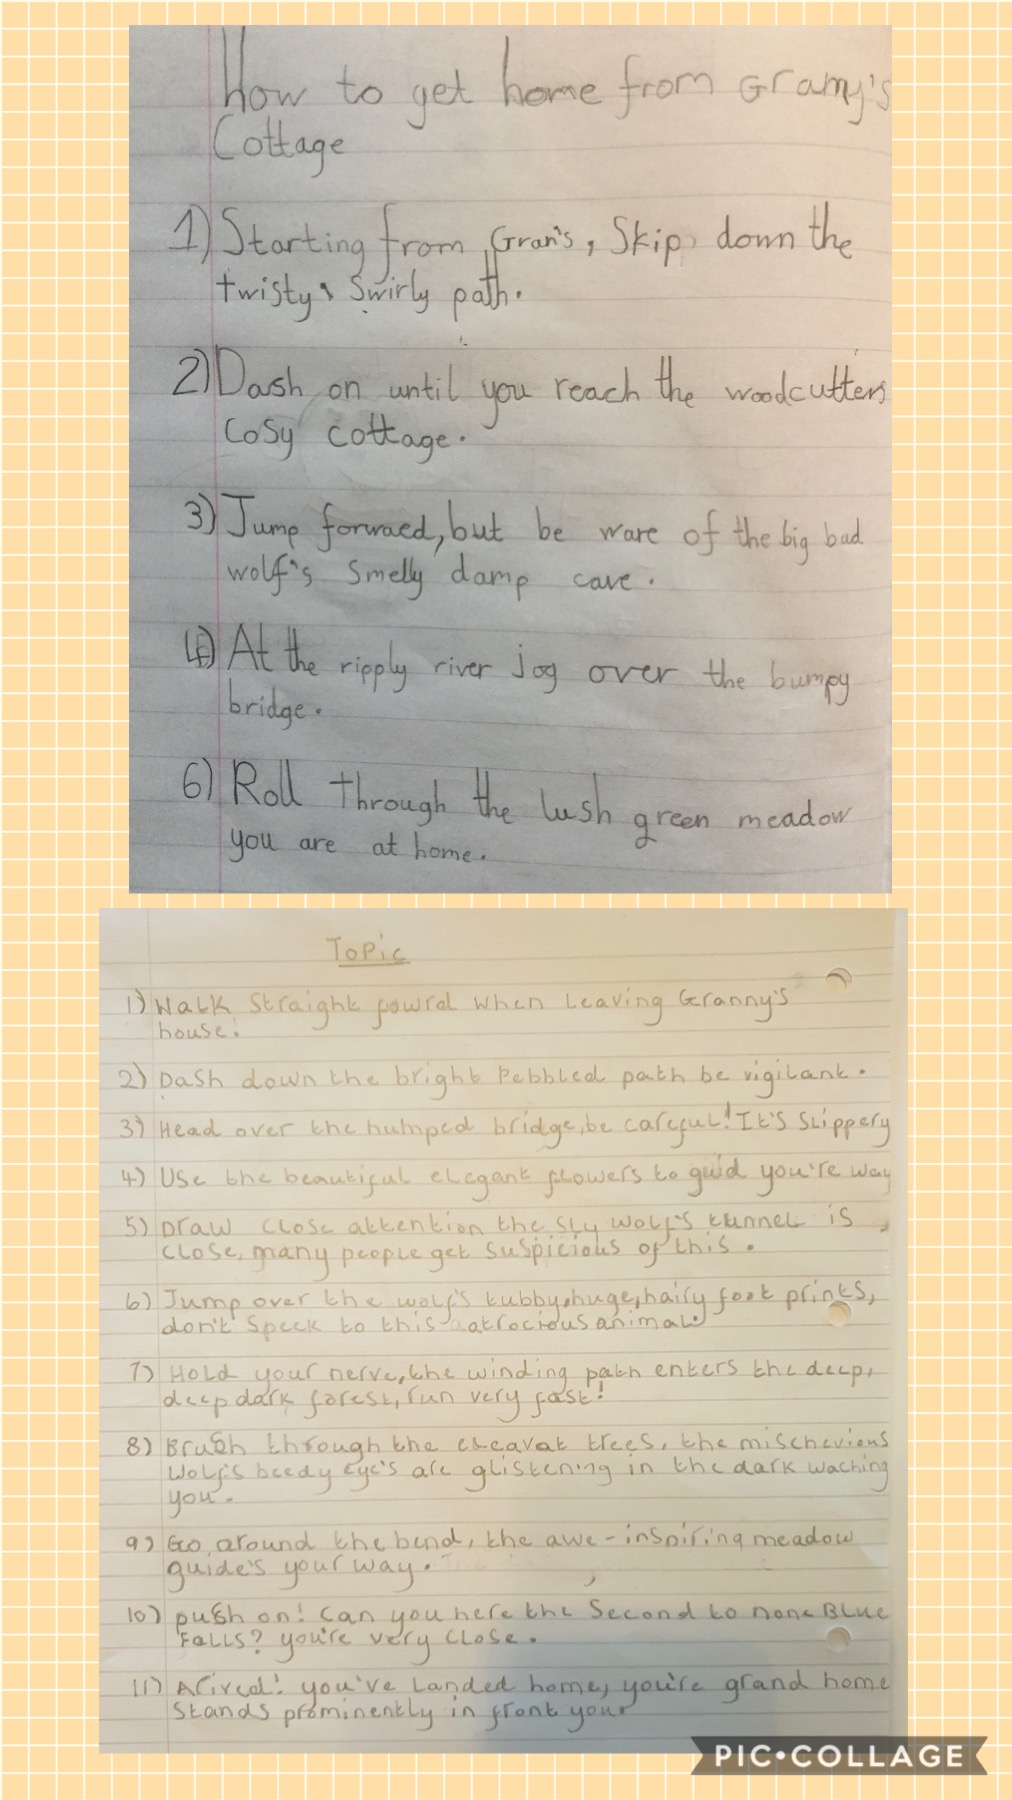 How to get home from Gramy's
Cottage
1) Starting from Gran's, Skip down the
twisty, swirly path.
2) Dash on until you reach the woodcutters
Cosy cottage.
3) Jump forwaed, but be ware of the big bad
wolf's smelly damp cave.
4) At the ripply river jog over the bumpy
bridge.
6) Roll through the lush green meadow
you are at home.
Topic
1) Walk straight fowrd when leaving Granny's
house.
2) Dash down the bright Pebbled path be vigilant.
3) Head over the humped bridge, be careful! It's Slippery
4) Use the beautiful elegant flowers to guid you're way
5) Draw close attention the sly wolf's tunnel is
close, many people get suspicious of this.
6) Jump over the wolf's tubby, huge, hairy foot prints,
don't speek to this atrocious animal.
7) Hold your nerve, the winding path enters the deep,
deep dark forest, run very fast!
8) Brush through the trees, the mischevious
wolf's beedy eye's are glistening in the dark waching
you.
9) Go around the bend, the awe-inspiring meadow
guide's your way.
10) push on! Can you here the Second to none BLUE
FALLS? you're very close.
11) Arived! you've Landed home, you're grand home
stands prominently in front your
PIC•COLLAGE